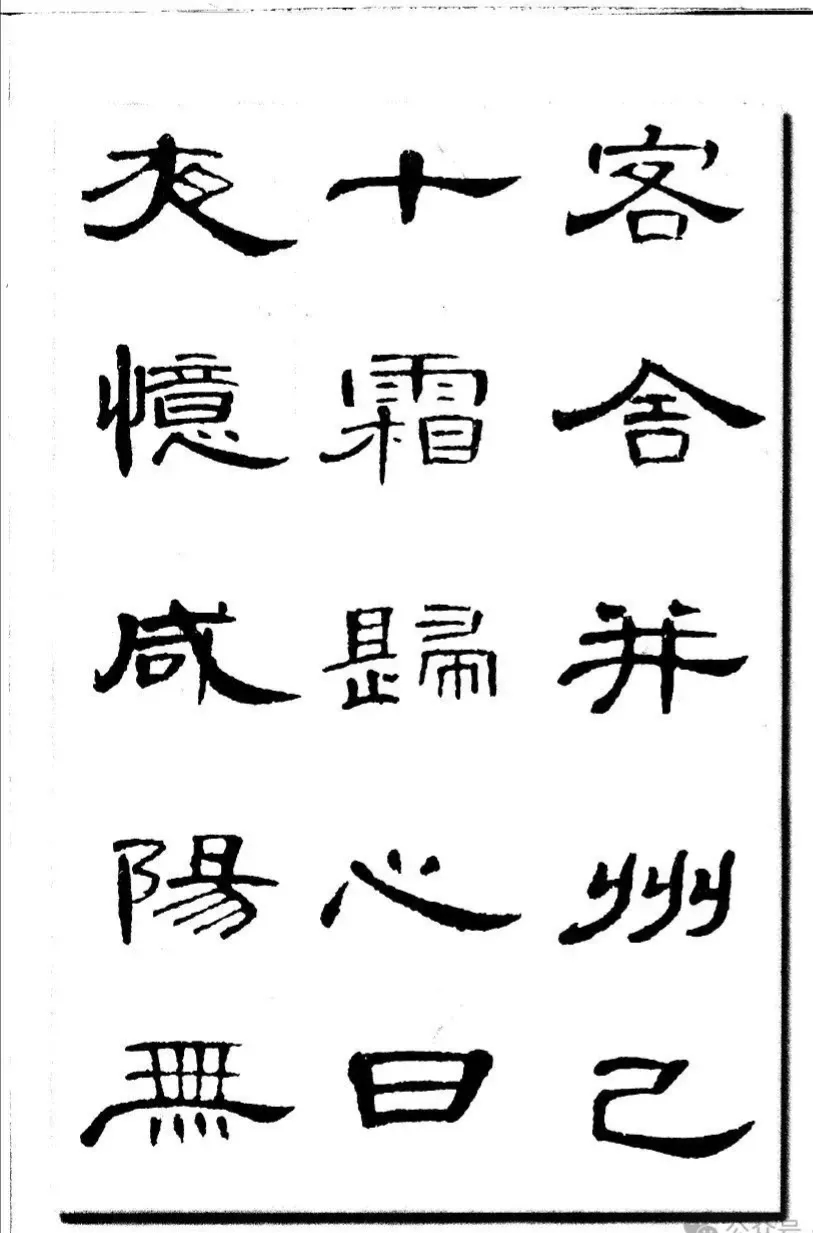 客舍并州已
十霜歸心日
夜憶咸陽無
公众号